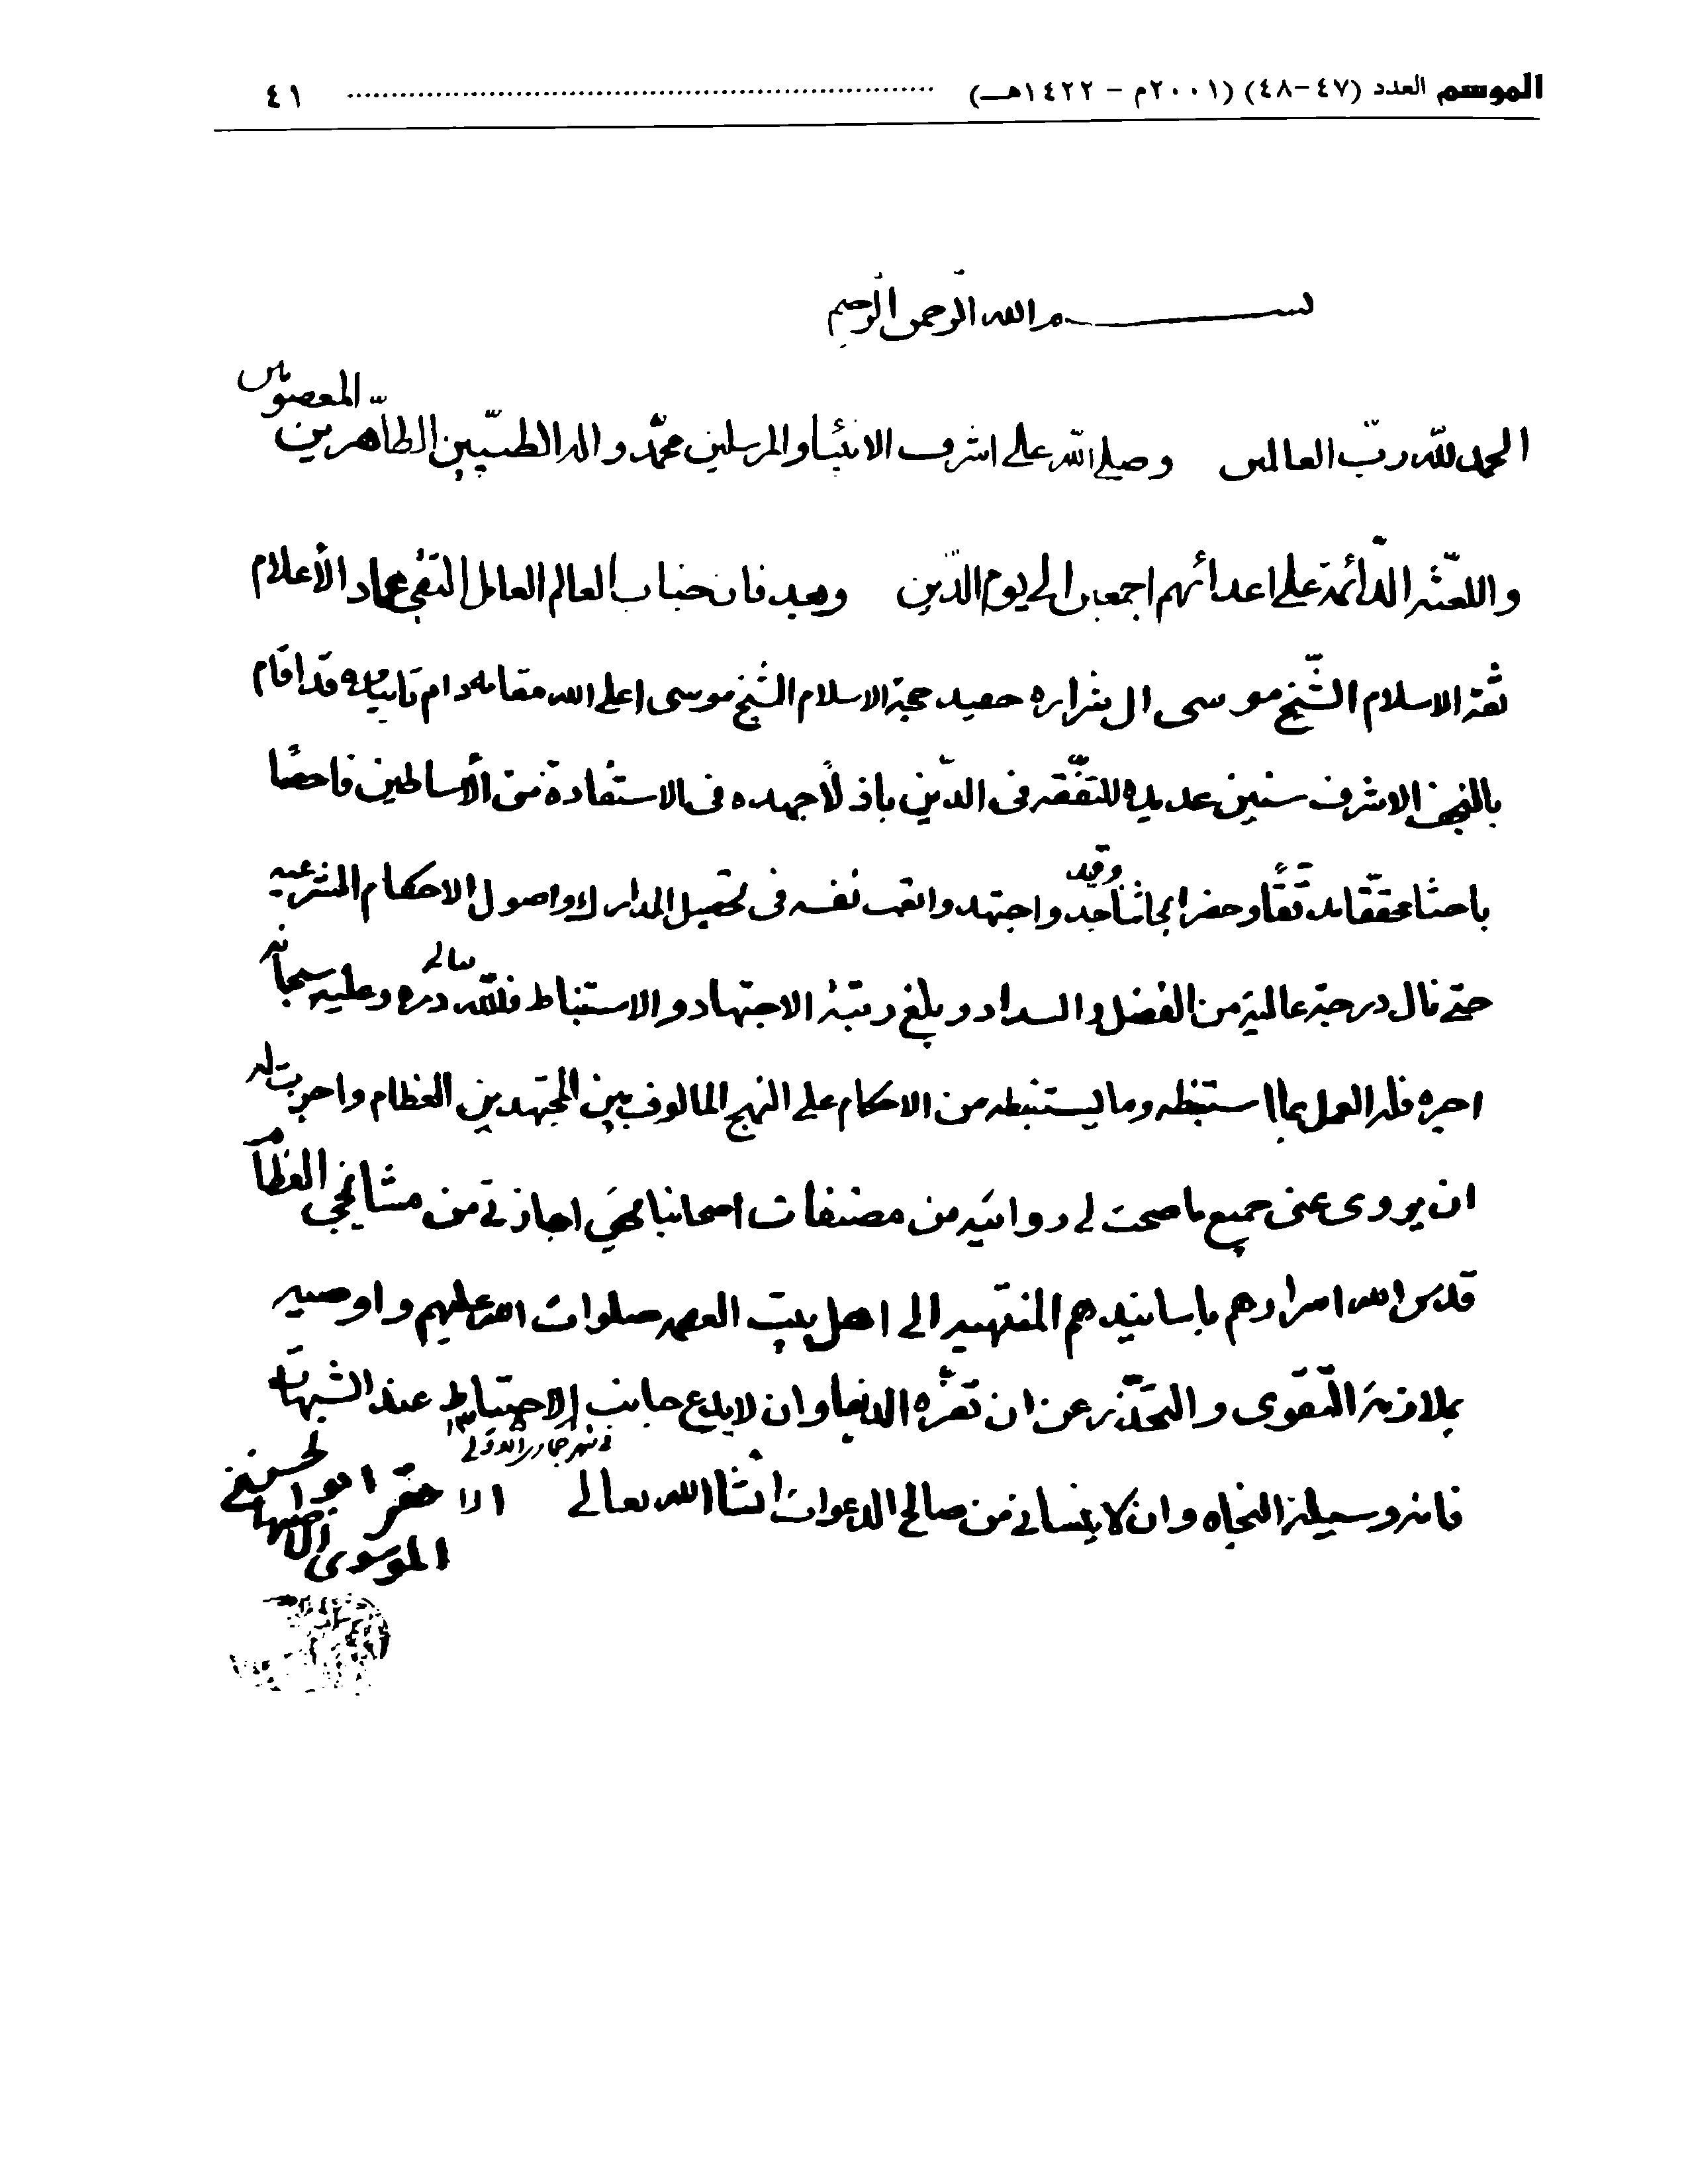 الموسم العدد (٤٧-٤٨) (٢٠٠١م - ١٤٢٢هـ) ٤١
بسم الله الرحمن الرحيم
الحمد لله ربّ العالمين وصلى الله على اشرف الانبياء والمرسلين محمّد واله الطيّبين الطاهرين المعصومين
واللعنة الدّائمة على اعدائهم اجمعين الى يوم الدّين وبعد فان جناب العالم العامل التقي عماد الأعلام
ثقة الاسلام الشّيخ موسى ال شراره حفيد حجة الاسلام الشيخ موسى اعلى الله مقامه دام تاييده قد اقام
بالنجف الاشرف سنين عديده للتفقّه فى الدّين باذلاً جهده فى الاستفادة من الأساطين فاحصًا
باحثا محققا مدققًا وحضر ابحاثنا وقد جد واجتهد واتعب نفسه فى تحصيل المدارك واصول الاحكام الشرعيه
حتى نال درجة عالية من الفضل والسداد وبلغ رتبة الاجتهاد والاستنباط فللّه تعالى دره وعليه سبحانه
اجره فله العمل بما استنبطه وما يستنبطه من الاحكام على النهج المالوف بين المجتهدين العظام واجزت له
ان يروى عنى جميع ما صحت لي روايته من مصنفات اصحابنا بحق اجازتي من مشايخي العظام
قدس الله اسرارهم باسانيدهم المنتهيه الى اهل بيت العصمه صلوات الله عليهم واوصيه
بملازمة التّقوى والتحذّر عن ان تغره الدنيا وان لا يدع جانب الاحتياط عند الشبهات
فانه وسيلة النجاه وان لا ينساني من صالح الدعوات انشا الله تعالى
في شهر جمادى الاولى
الاحقر ابو الحسن
الموسوى الاصفهاني